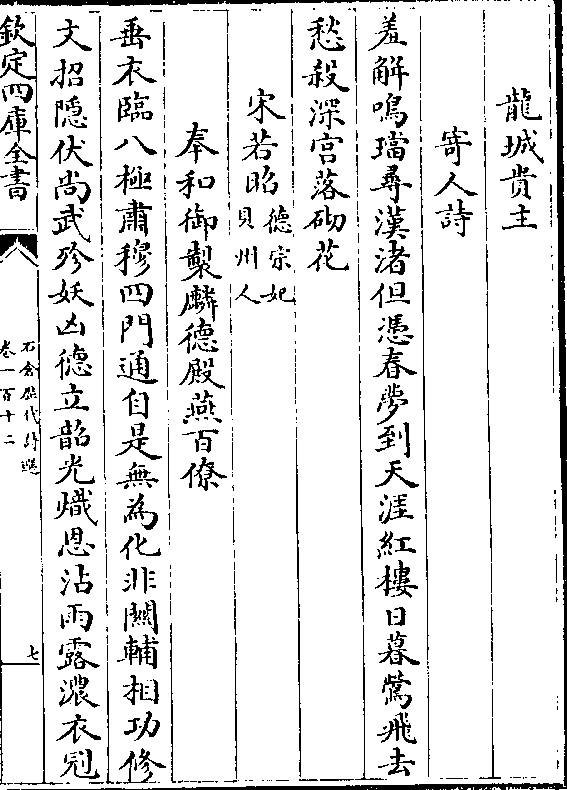 龍城贵主
寄人詩
羞解鳴璫尋漢渚但憑春夢到天涯紅樓日暮鶯飛去
愁殺深宫落砌花
宋若昭德宗妃
貝州人
奉和御製麟德殿燕百僚
垂衣臨八極肅穆四門通自是無為化非關輔相功修
文招隱伏尚武殄妖凶德立韶光熾恩沾雨露濃衣冠
欽定四庫全書
石倉歴代詩選
卷一百十二
七